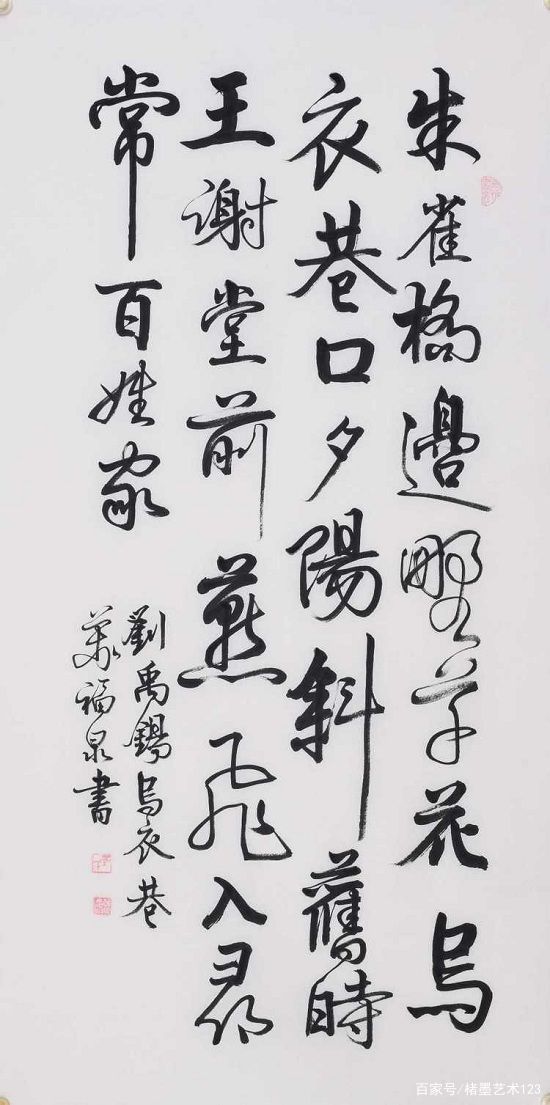 朱雀橋邊野草花烏
衣巷口夕陽斜舊時
王謝堂前燕飛入尋
常百姓家
劉禹錫烏衣巷
萬福泉書
百家号/楮墨艺术123